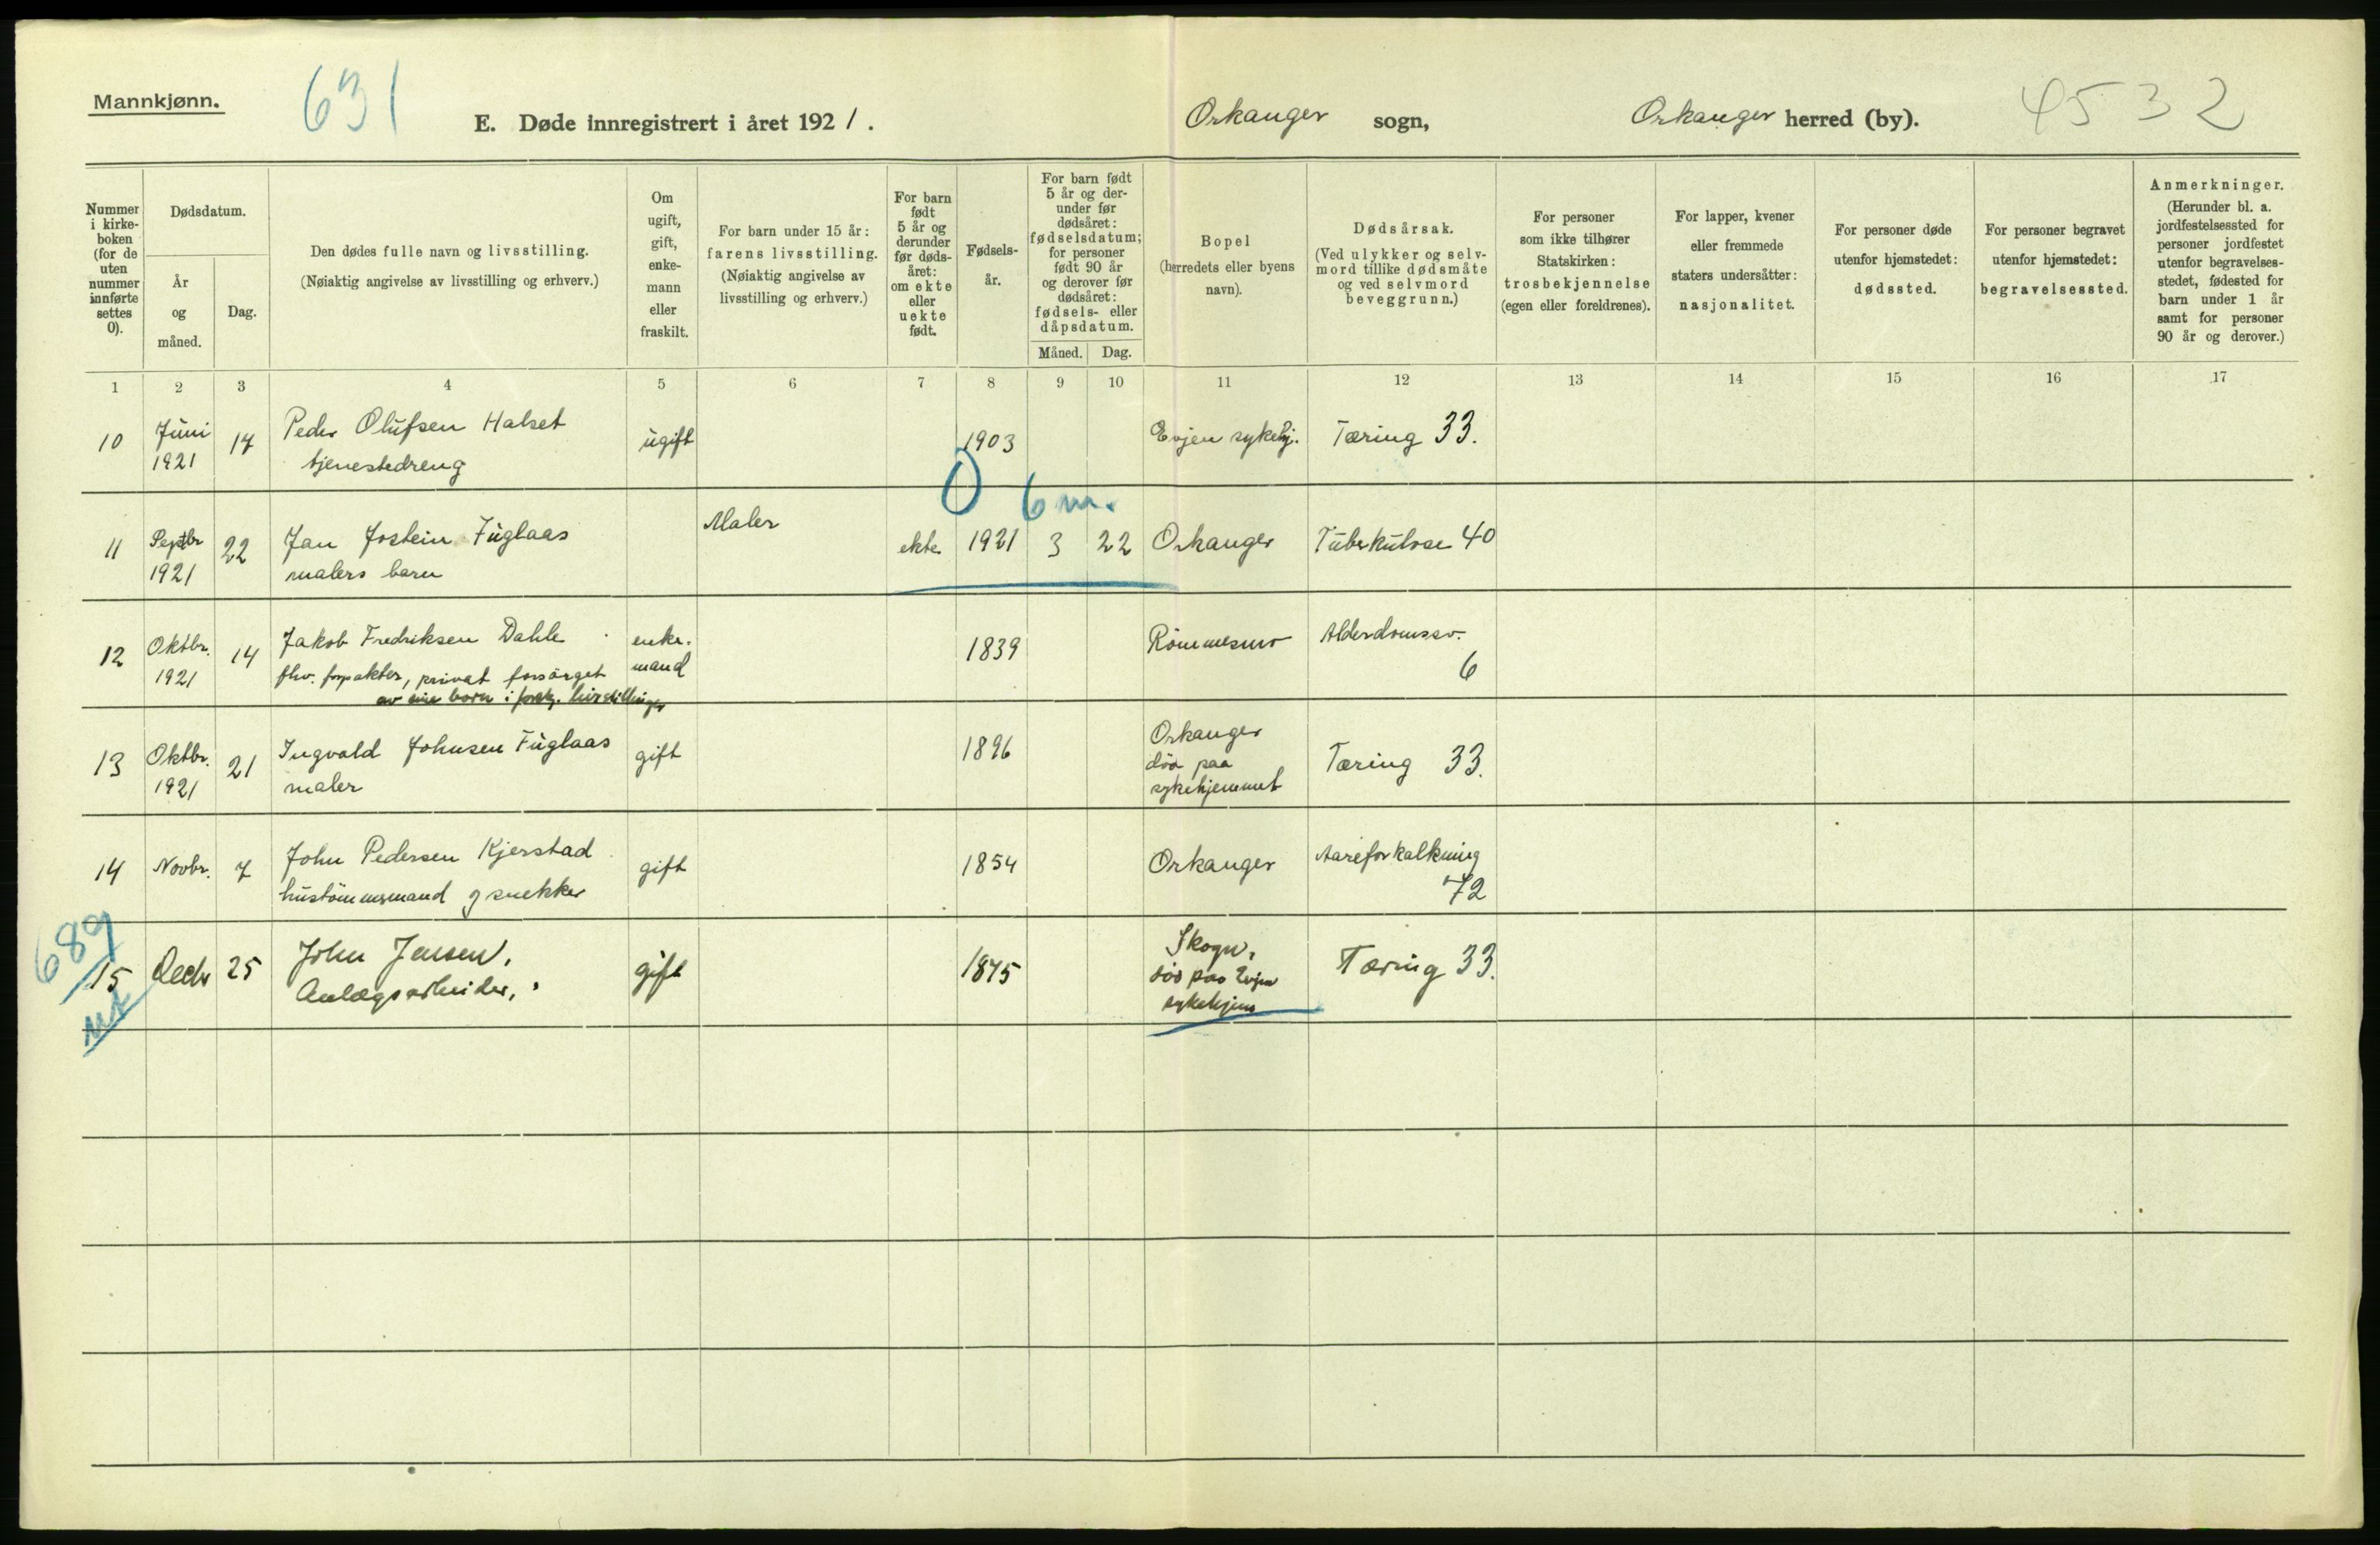 Mannkjønn.
631
E. Døde innregistrert i året 1921.
Orkanger sogn,
Orkanger herred (by).
4532
Nummer i kirke- boken (for de uten nummer innførte settes 0).
Dødsdatum.
År og måned.
Dag.
Den dødes fulle navn og livsstilling.
(Nøiaktig angivelse av livsstilling og erhverv.)
Om ugift, gift, enke- mann eller fraskilt.
For barn under 15 år: farens livsstilling.
(Nøiaktig angivelse av livsstilling og erhverv.)
For barn født 5 år og derunder før døds- året: om ekte eller uekte født.
Fødsels- år.
For barn født 5 år og der- under før dødsåret: fødselsdatum; for personer født 90 år og derover før dødsåret: fødsels- eller dåpsdatum.
Måned.
Dag.
Bopel (herredets eller byens navn).
Dødsårsak.
(Ved ulykker og selv- mord tillike dødsmåte og ved selvmord beveggrunn.)
For personer som ikke tilhører Statskirken: trosbekjennelse (egen eller foreldrenes).
For lapper, kvener eller fremmede staters undersåtter: nasjonalitet.
For personer døde utenfor hjemstedet: dødssted.
For personer begravet utenfor hjemstedet: begravelsessted.
Anmerkninger.
(Herunder bl. a. jordfestelsessted for personer jordfestet utenfor begravelses- stedet, fødested for barn under 1 år samt for personer 90 år og derover.)
1 2 3 4 5 6 7 8 9 10 11 12 13 14 15 16 17
10 Juni 1921 17 Peder Olufsen Halset tjenestedreng ugift 1903 Evjen sykehj. Tæring 33.
0 6 m.
11 Septbr 1921 22 Jan Jostein Fuglaas malers barn Maler ekte 1921 3 22 Orkanger Tuberkulose 40
12 Oktbr. 1921 14 Jakob Fredriksen Dahle fhv. forpakter, privat forsørget av sine børn i enke- mand 1839 Rømmesmo Alderdomssv. 6
13 Oktbr. 1921 21 Ingvald Johnsen Fuglaas maler gift 1896 Orkanger død paa sykehjemmet Tæring 33.
14 Novbr. 7 John Pedersen Kjerstad hustømmermand og snekker gift 1854 Orkanger Aareforkalkning 72
689
15 Decbr 25 John Jensen, Anlægsarbeider, gift 1875 Skogn, død paa Evjen sykehjem Tæring 33.